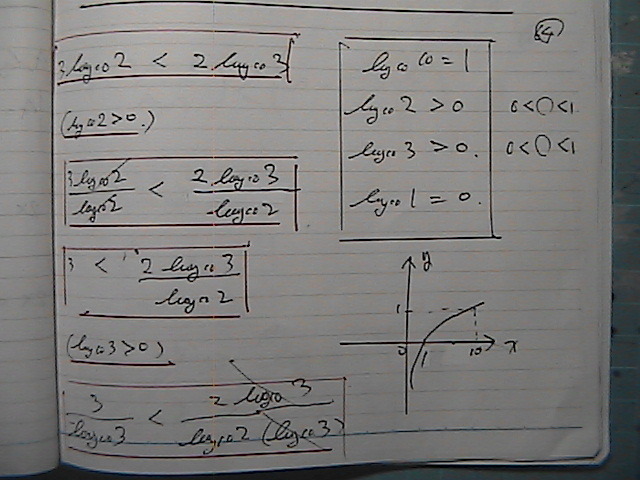 (4)
3 log₁₀ 2 < 2 log₁₀ 3
(log₁₀ 2 > 0.)
3 log₁₀ 2 / log₁₀ 2 < 2 log₁₀ 3 / log₁₀ 2
3 < 2 log₁₀ 3 / log₁₀ 2
(log₁₀ 3 > 0)
3 / log₁₀ 3 < 2 log₁₀ 3 / log₁₀ 2 (log₁₀ 3)
log₁₀ 10 = 1
log₁₀ 2 > 0 0 < ◯ < 1
log₁₀ 3 > 0. 0 < ◯ < 1
log₁₀ 1 = 0.
y
1
0 1 10 x